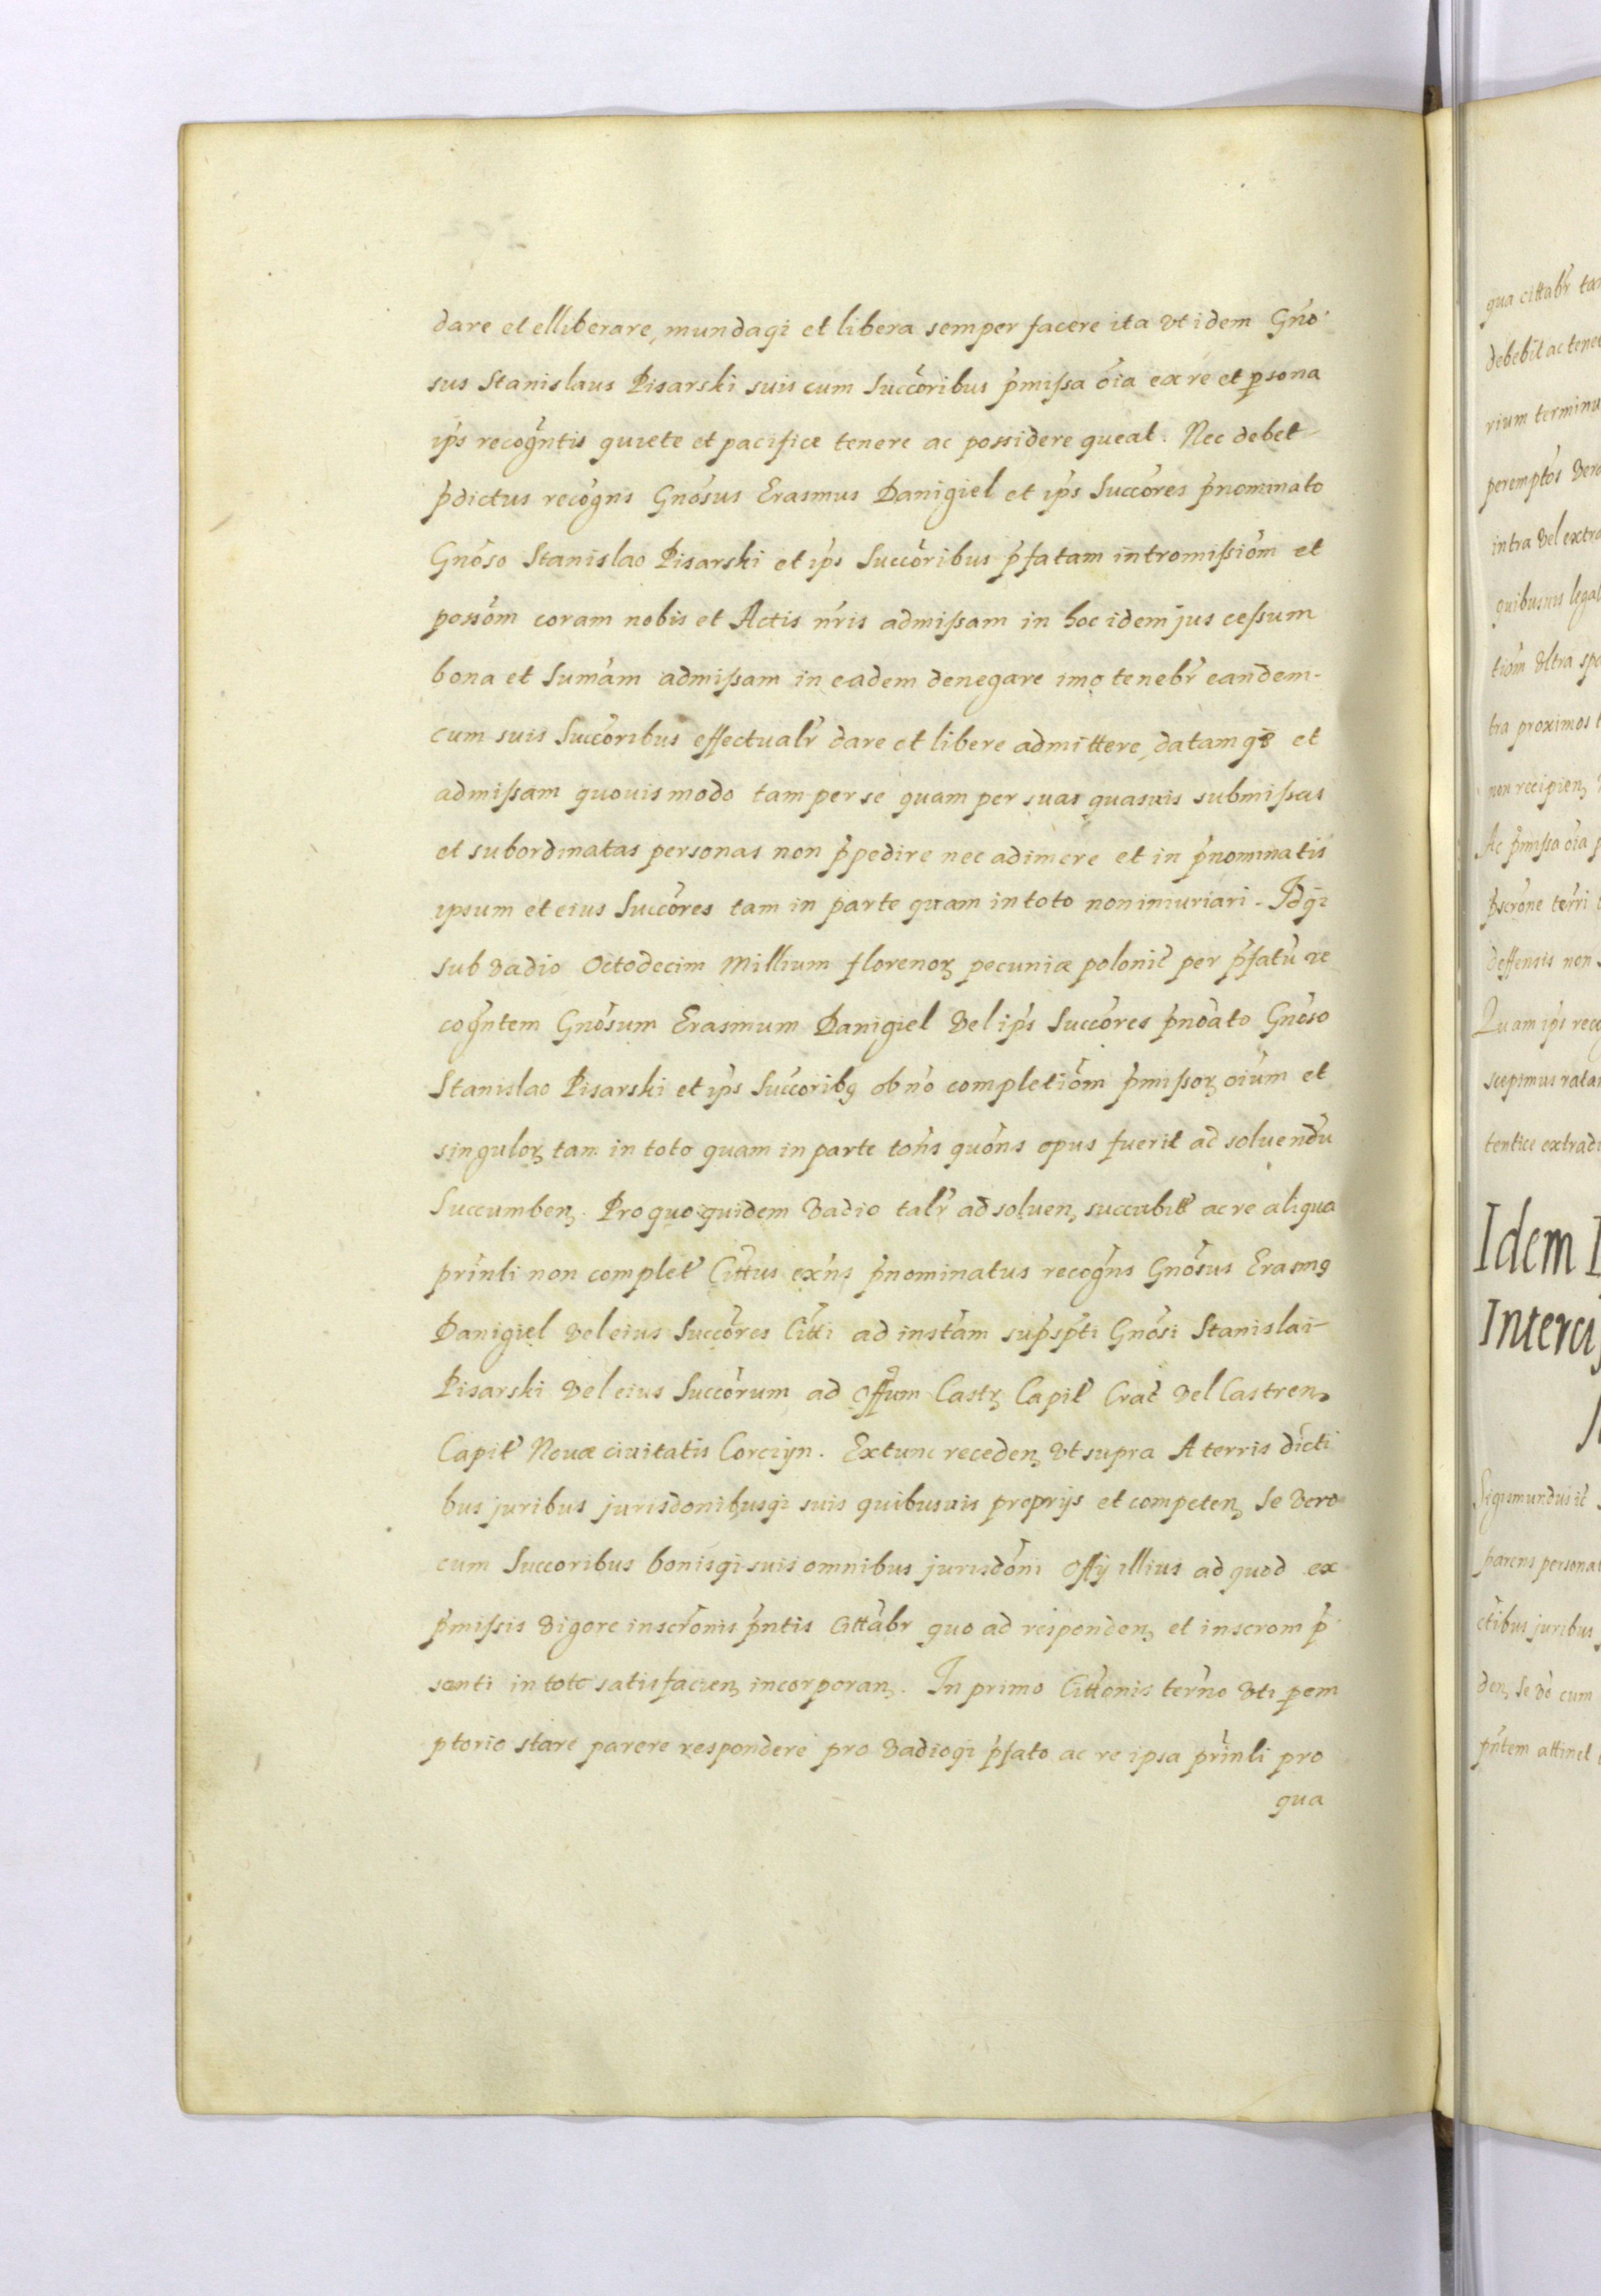 dare et elliberare, mundaqȝ et libera semper facere ita vt idem Gño-
sus Stanislaus Pisarski suis cum Succõribus p̃missa õia ex re et p̱sona
ip̃s recog̃ntis quiete et pacifice tenere ac possidere queat. Nec debet
p̃dictus recog̃ns Gnõsus Erasmus Danigiel et ip̃s Succõres p̃nominato
Gnõso Stanislao Pisarski et ip̃s Succõribus p̃fatam intromissiõm et
possõm coram nobis et Actis ñris admissam in hoc idem jus cessum
bona et Sumãm admissam in eadem denegare imo tenebr̃ eandem
cum suis Succõribus effectualr̃ dare et libere admittere, datamqȝ et
admissam quouis modo tam per se quam per suas quasuis submissas
et subordinatas personas non p̃pedire nec adimere et in p̃nominatis
ipsum et eius Succõres tam in parte quam in toto non iniuriari. Idqȝ
sub vadio Octodecim Millium florenoꝝ pecuniæ polonic̃ per p̃fatũ re
cog̃ntem Gnõsum Erasmum Danigiel vel ip̃s Succõres p̃noãto Gnõso
Stanislao Pisarski et ip̃s Succõribꝰ ob nõ completiõm p̃missoꝝ oĩum et
singuloꝝ tam in toto quam in parte tõns quõns opus fuerit ad soluendũ
Succumbenȝ. Pro quo quidem vadio talr̃ ad soluenȝ succubit̃ ac re aliqua
prĩnli non complet̃ Cittus ex̃ns p̃nominatus recog̃ns Gnõsus Erasmꝰ
Danigiel vel eius Succõres Citti ad instãm sup̃sp̃ti Gnõsi Stanislai
Pisarski vel eius Succõrum ad Offum Castrȝ Capit̃ Crac̃ vel Castrenȝ
Capit̃ Nouæ ciuitatis Corczyn. Extunc recedenȝ vt supra A terris dicti
bus juribus jurisdonibusqȝ suis quibusuis proprijs et competenȝ se vero
cum Succoribus bonisqȝ suis omnibus jurisdõni Offij illius ad quod ex
p̃missis vigore inscrõnis p̃ntis cittabr̃ quo ad respondenȝ et inscrom p̃
senti in toto satisfacienȝ incorporanȝ. In primo Cittõnis ter̃no vti p̱em
ptorio stare parere respondere pro vadioqȝ p̃fato ac re ipsa prĩnli pro
qua
qua cittabr̃
debebit ac
rium
peremptõs
intra vel extra
quibusuis
tiõm vltra
tra proximos
non recipienȝ
Ac p̃missa õia
p̃scrõne terri
deffensis non
Quam ip̃s
scepimus
Idem
Sigismundus
parens
juribus
denȝ se võ cum
p̃ntem attinet